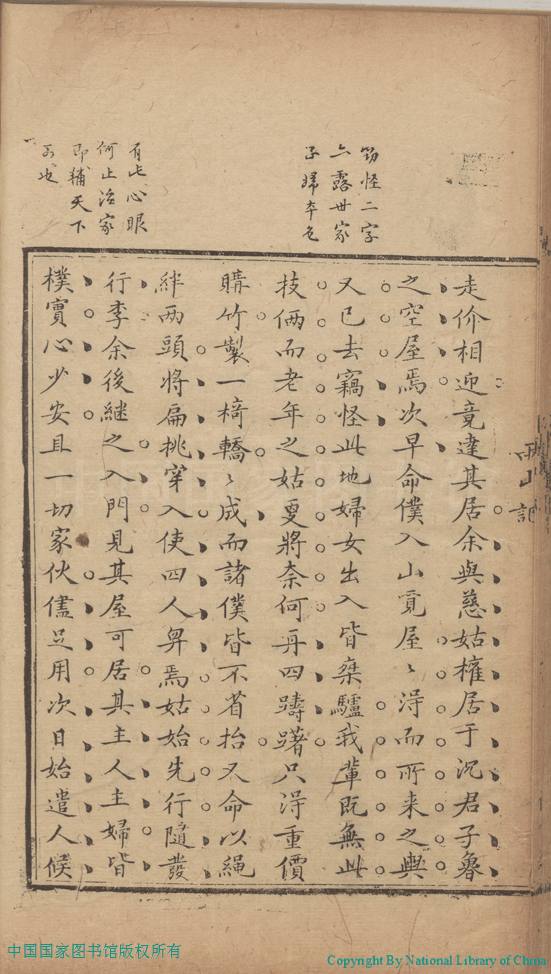 走价相迎竟達其居余與慈姑權居于沉君子魯
之空屋焉次早命僕入山覓屋〻淂而所来之輿
又已去竊怪此地婦女出入皆椉驢我軰既無此
技俩而老年之姑更將奈何再四躊躇只淂重價
購竹製一椅轎〻成而諸僕皆不省抬又命以繩
絆两頭將扁挑穿入使四人舁焉姑始先行隨發
行李余後継之入門見其屋可居其主人主婦皆
樸實心少安且一切家伙儘足用次日始遣人候
竊怪二字
亦露世家
子婦本色
有此心眼
何止治家
即輔天下
可也
西山記
中国国家图书馆版权所有
Copyright By National Library of China